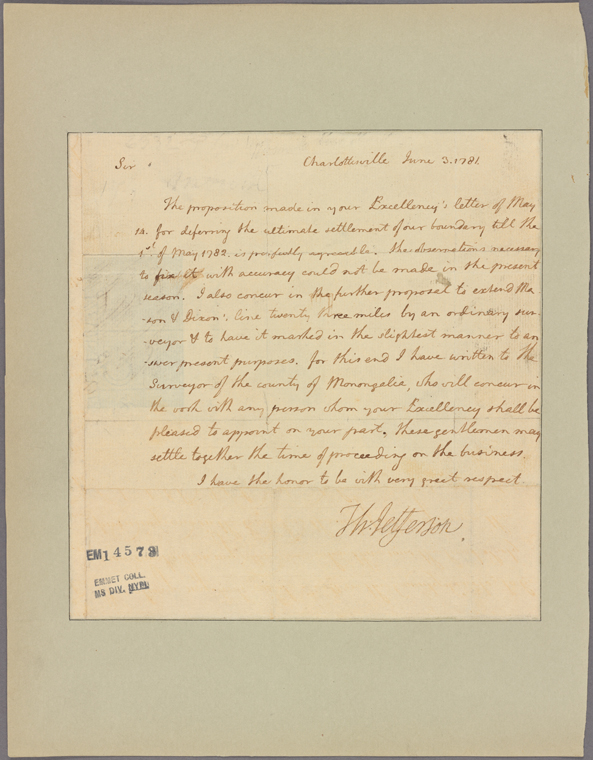 Sir
Charlottesville June 3. 1781.
The proposition made in your Excellency's letter of May
14. for deferring the ultimate settlement of our boundary till the
1st. of May 1782. is perfectly agreeable. the observations necessary
to fix it with accuracy could not be made in the present
season. I also concur in the further proposal to extend Ma
-son & Dixon's line twenty three miles by an ordinary sur-
-veyor & to have it marked in the slightest manner to an
swer present purposes. for this end I have written to the
Surveyor of the county of Monongalia, who will concur in
the work with any person whom your Excellency shall be
pleased to appoint on your part. these gentlemen may
settle together the time of proceeding on the business.
I have the honor to be with very great respect
Th: Jefferson.
EM14579
EMMET COLL.
MS DIV. NYPL